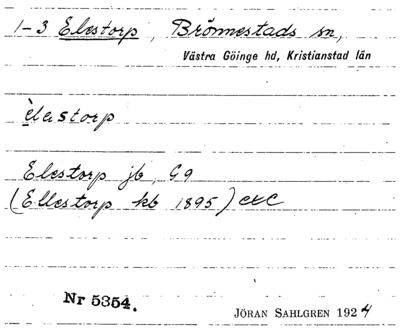 1-3 Elestorp, Brönnestads sn,
Västra Göinge hd, Kristianstad län
èlastorp
Elestorp jb, G9
(Ellestorp kb 1895)
Nr 5354.
JÖRAN SAHLGREN 1924